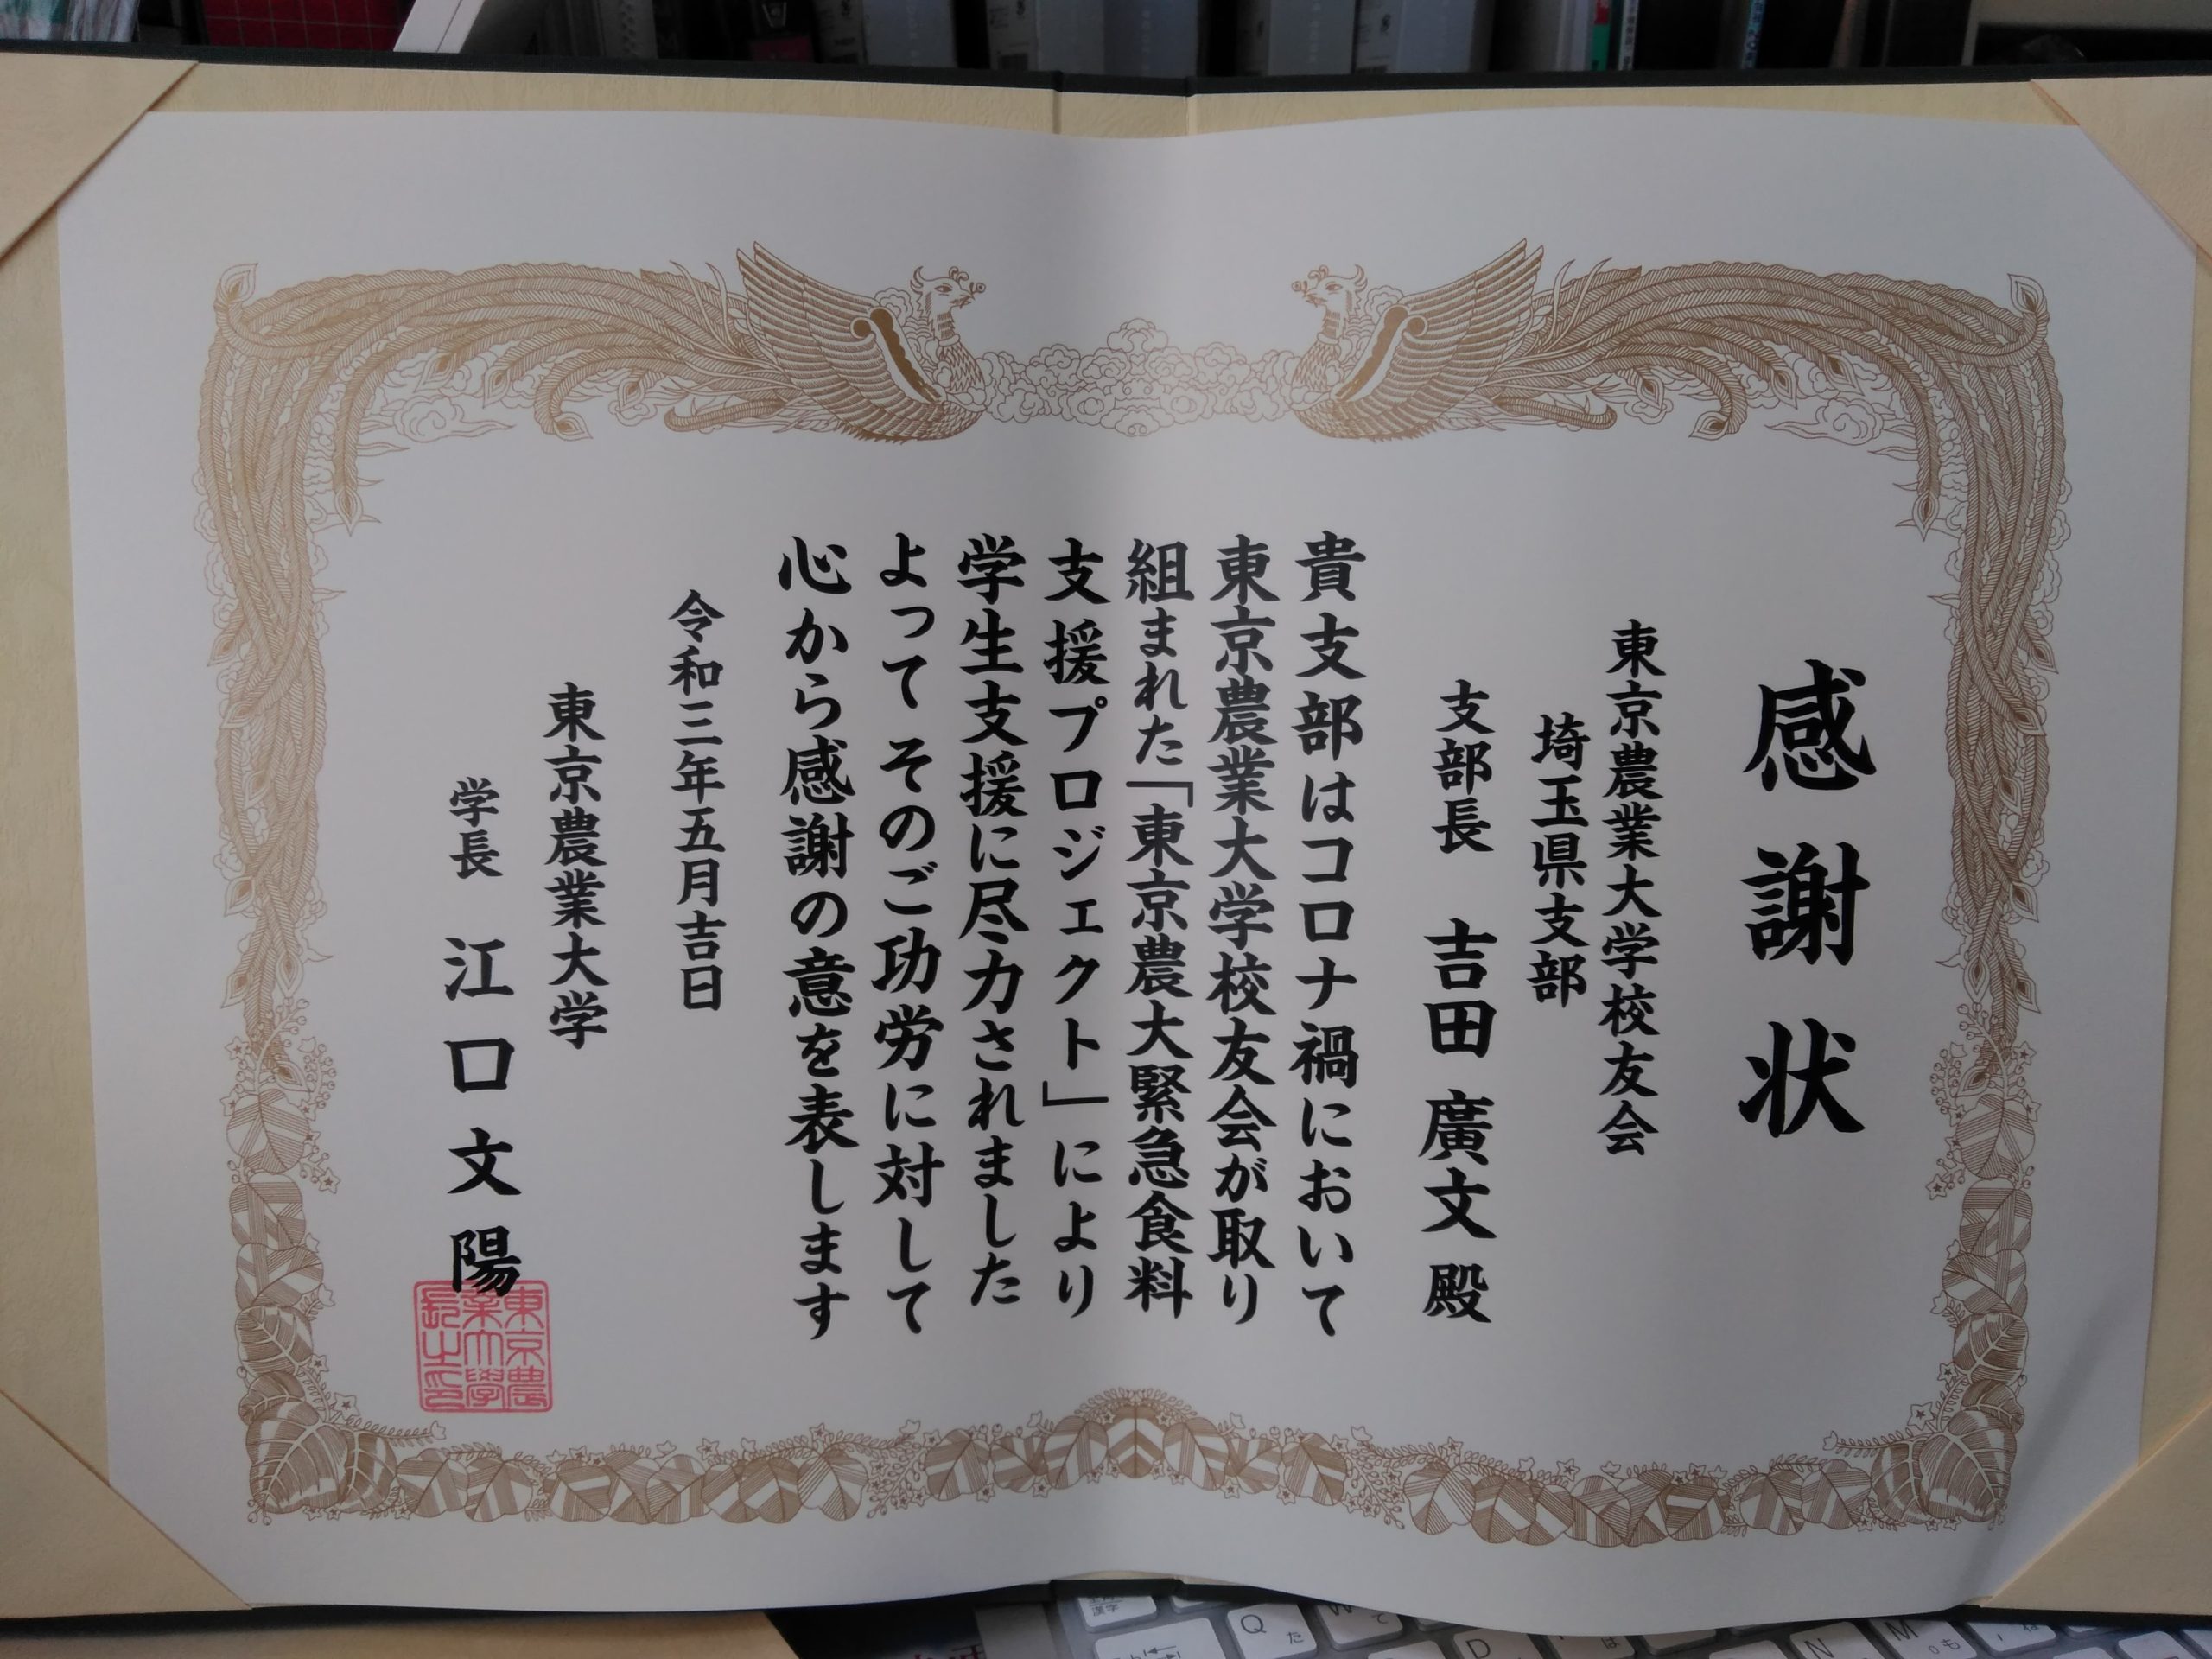 感謝状
東京農業大学校友会
埼玉県支部
支部長 吉田廣文殿
貴支部はコロナ禍において
東京農業大学校友会が取り
組まれた「東京農大緊急食料
支援プロジェクト」により
学生支援に尽力されました
よってそのご功労に対して
心から感謝の意を表します
令和三年五月吉日
東京農業大学
学長 江口文陽
東京農
業大學
長之印
Q
た
W
て
D
N
M
も
ね